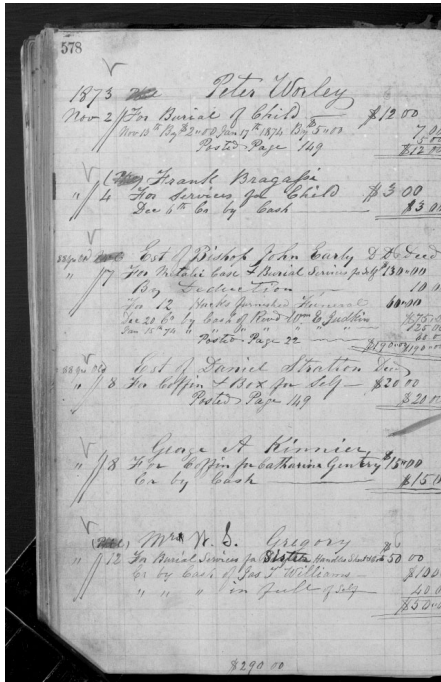 578
1873 Peter Worley
Nov 2 For Burial of Child $12 00
Nov 10th By $2 00 Jan 17th 1874 By $5 00 7.00
5 00
Posted Page 149 $12 00
Frank Bragassi
" 4 For Services for Child $3 00
Dec 6th Cr by Cash $3 00
Est of Bishop John Early D D Decd
" 7 For Metalic Case & Burial Services for Self $130 00
By Deduction 10 0
For 12 Hacks furnished Funeral 60 00
Dec 20 Cr by Cash of Revd Wm E Judkins
Jan 15th 74 " " " " " " 125 00
60 0
Posted Page 22 $190 00 $190 00
Est of Daniel Stratton Decd
" 8 For Coffin & Box for Self $20 00
Posted Page 149 $20 00
George A Kinnier
" 8 For Coffin for Catharine Gentry $15 00
Cr by Cash $15 0
Mrs W. S. Gregory
" 12 For Burial Services for Sister Handles $50 00
Cr by Cash of Jas T Williams $10 0
" " " in full of Self 40 0
$50 0
$290 00